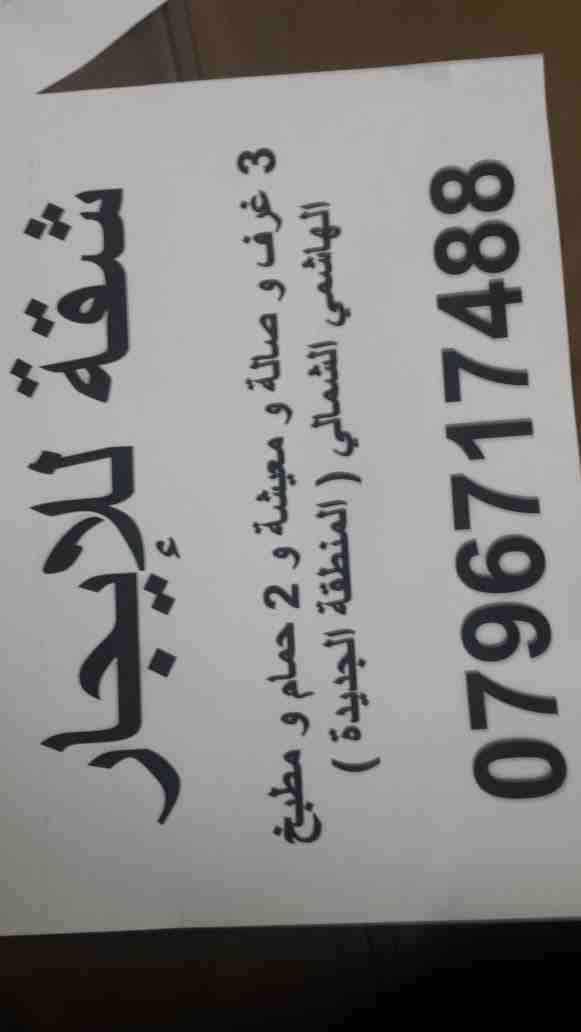 شقة للإيجار
3 غرف و صالة و معيشة و 2 حمام و مطبخ
الهاشمي الشمالي ( المنطقة الجديدة )
0796717488